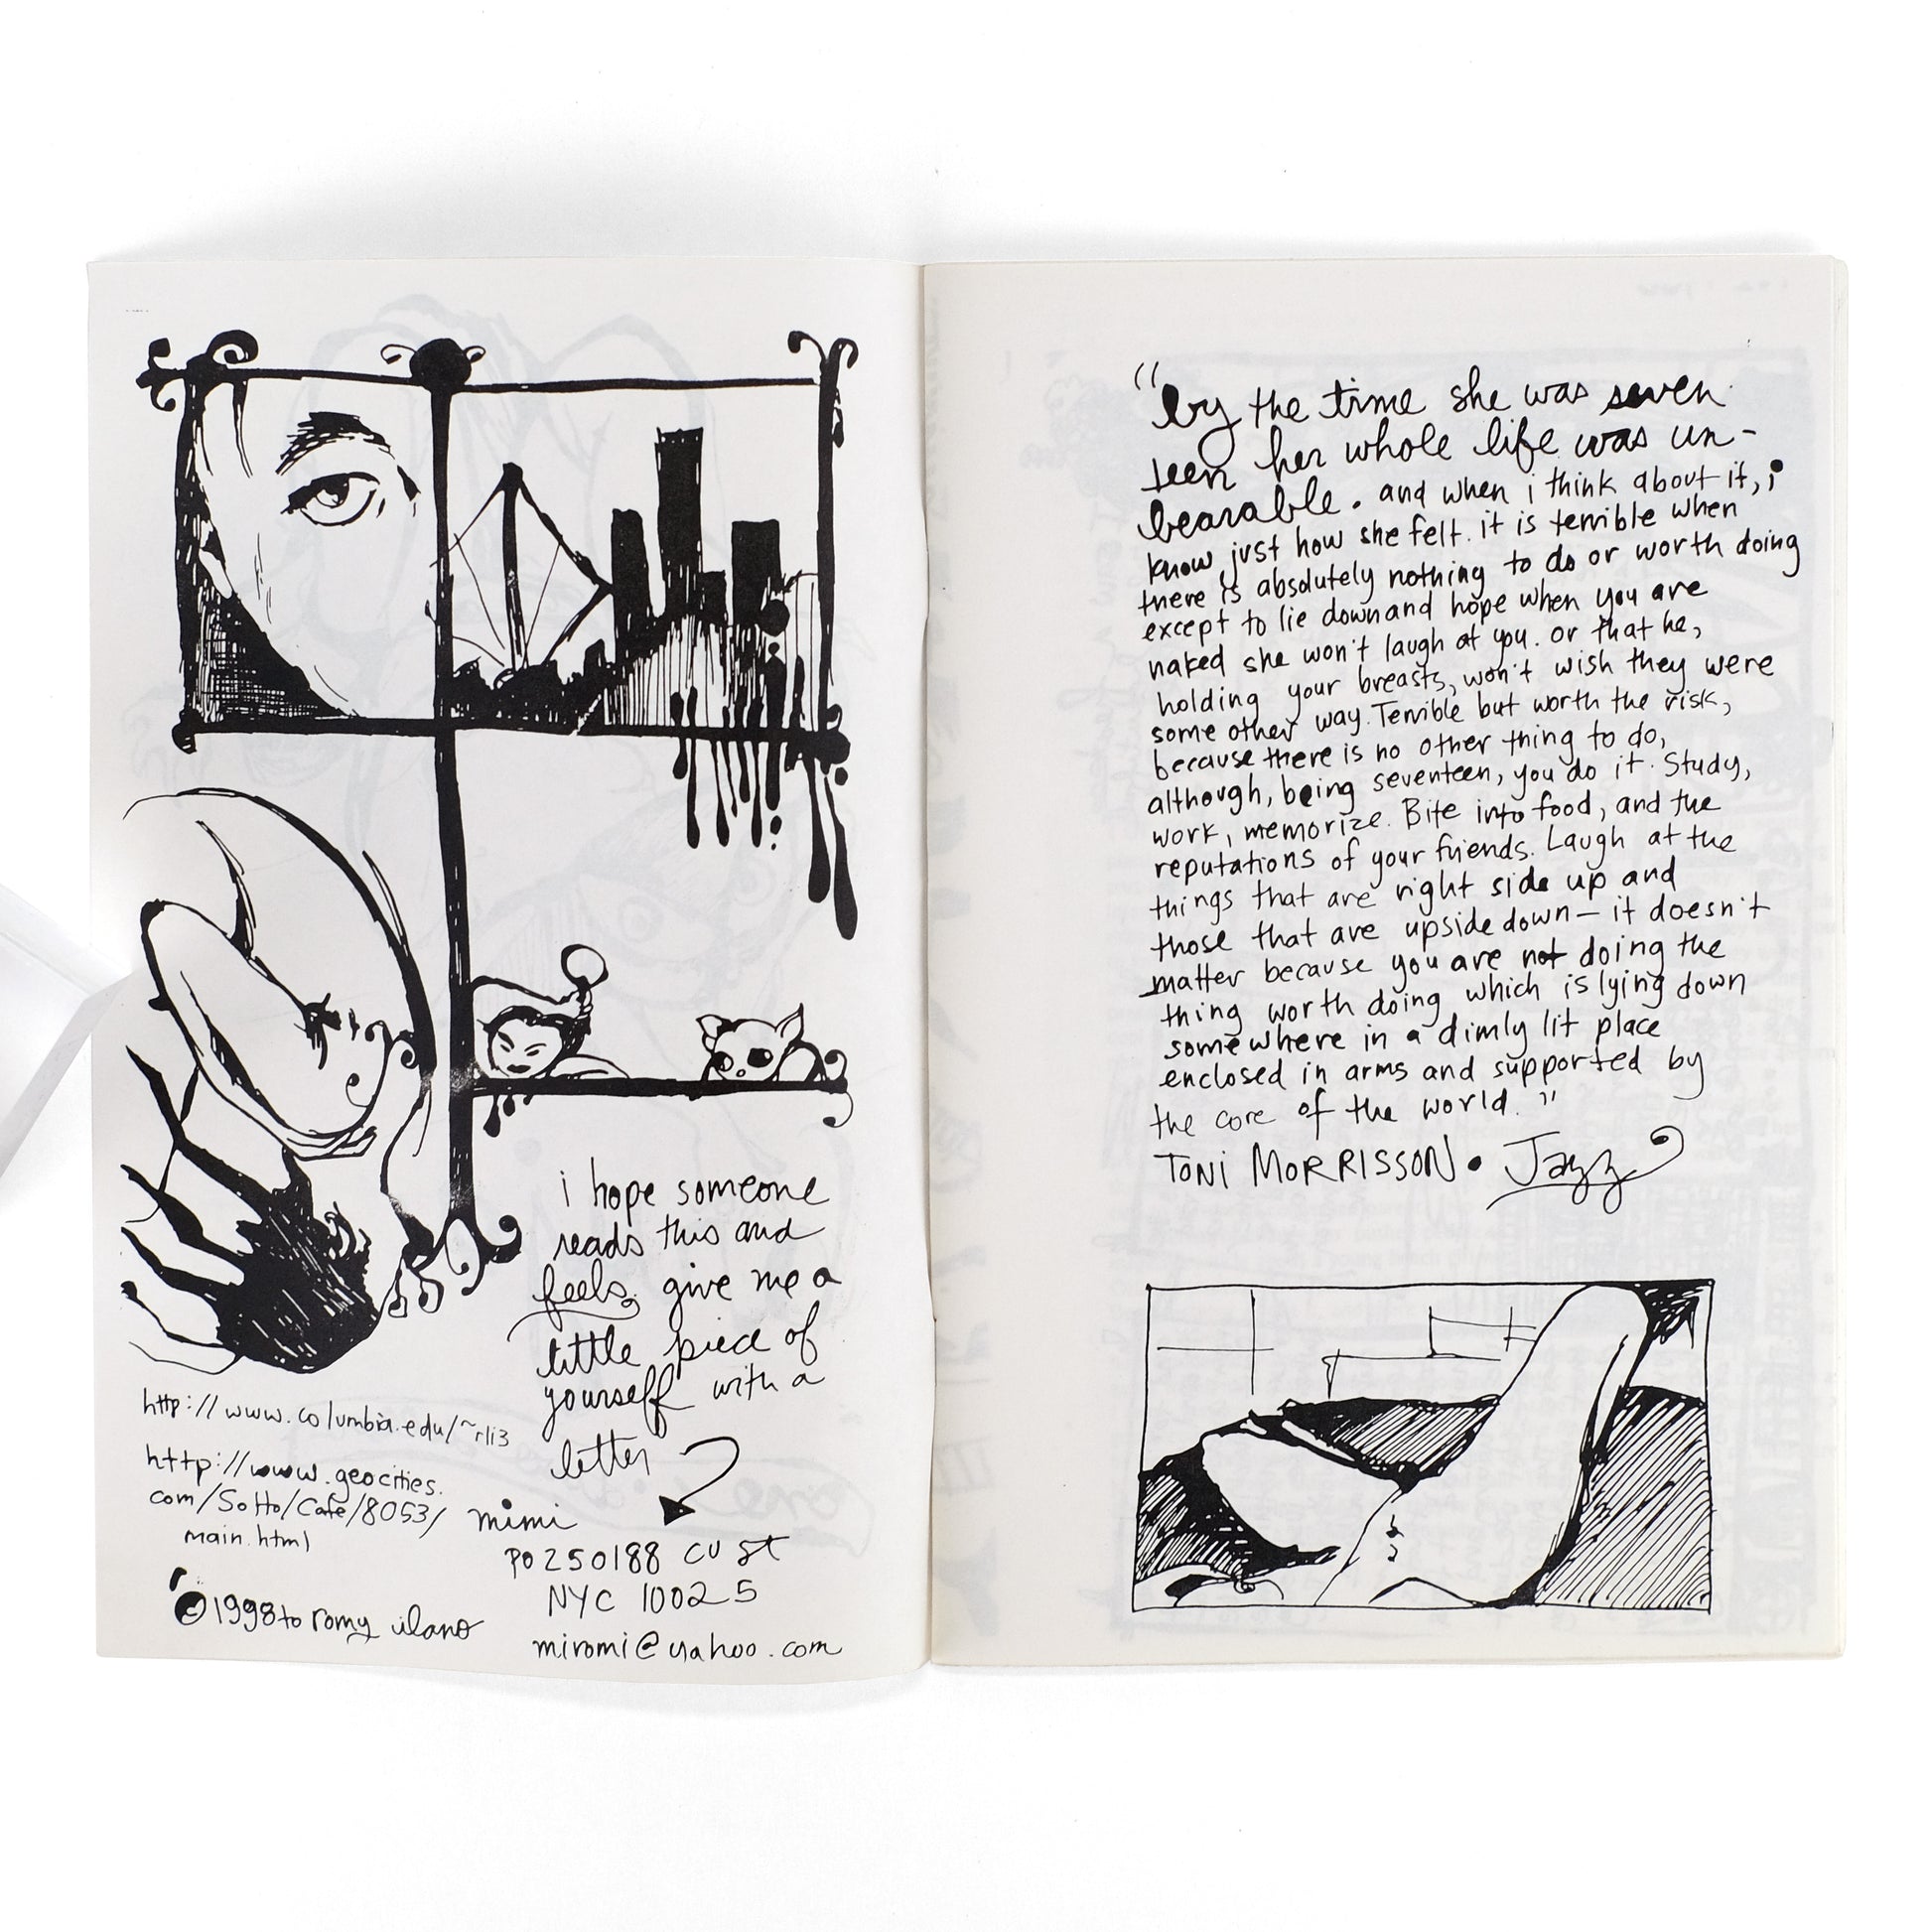 i hope someone
reads this and
feels. give me a
little piece of
yourself with a
letter
http://www.columbia.edu/~rli3
http://www.geocities.
com/SoHo/Cafe/8053/
main.html
mimi
PO 250188 CU st
NYC 10025
miromi@yahoo.com
©1998 to romy ilano
"by the time she was seven
teen her whole life was un-
bearable. and when i think about it, i
know just how she felt. it is terrible when
there is absolutely nothing to do or worth doing
except to lie down and hope when you are
naked she won't laugh at you. or that he,
holding your breasts, won't wish they were
some other way. Terrible but worth the risk,
because there is no other thing to do,
although, being seventeen, you do it. Study,
work, memorize. Bite into food, and the
reputations of your friends. Laugh at the
things that are right side up and
those that are upside down— it doesn't
matter because you are not doing the
thing worth doing which is lying down
somewhere in a dimly lit place
enclosed in arms and supported by
the core of the world."
TONI MORRISSON • Jazz